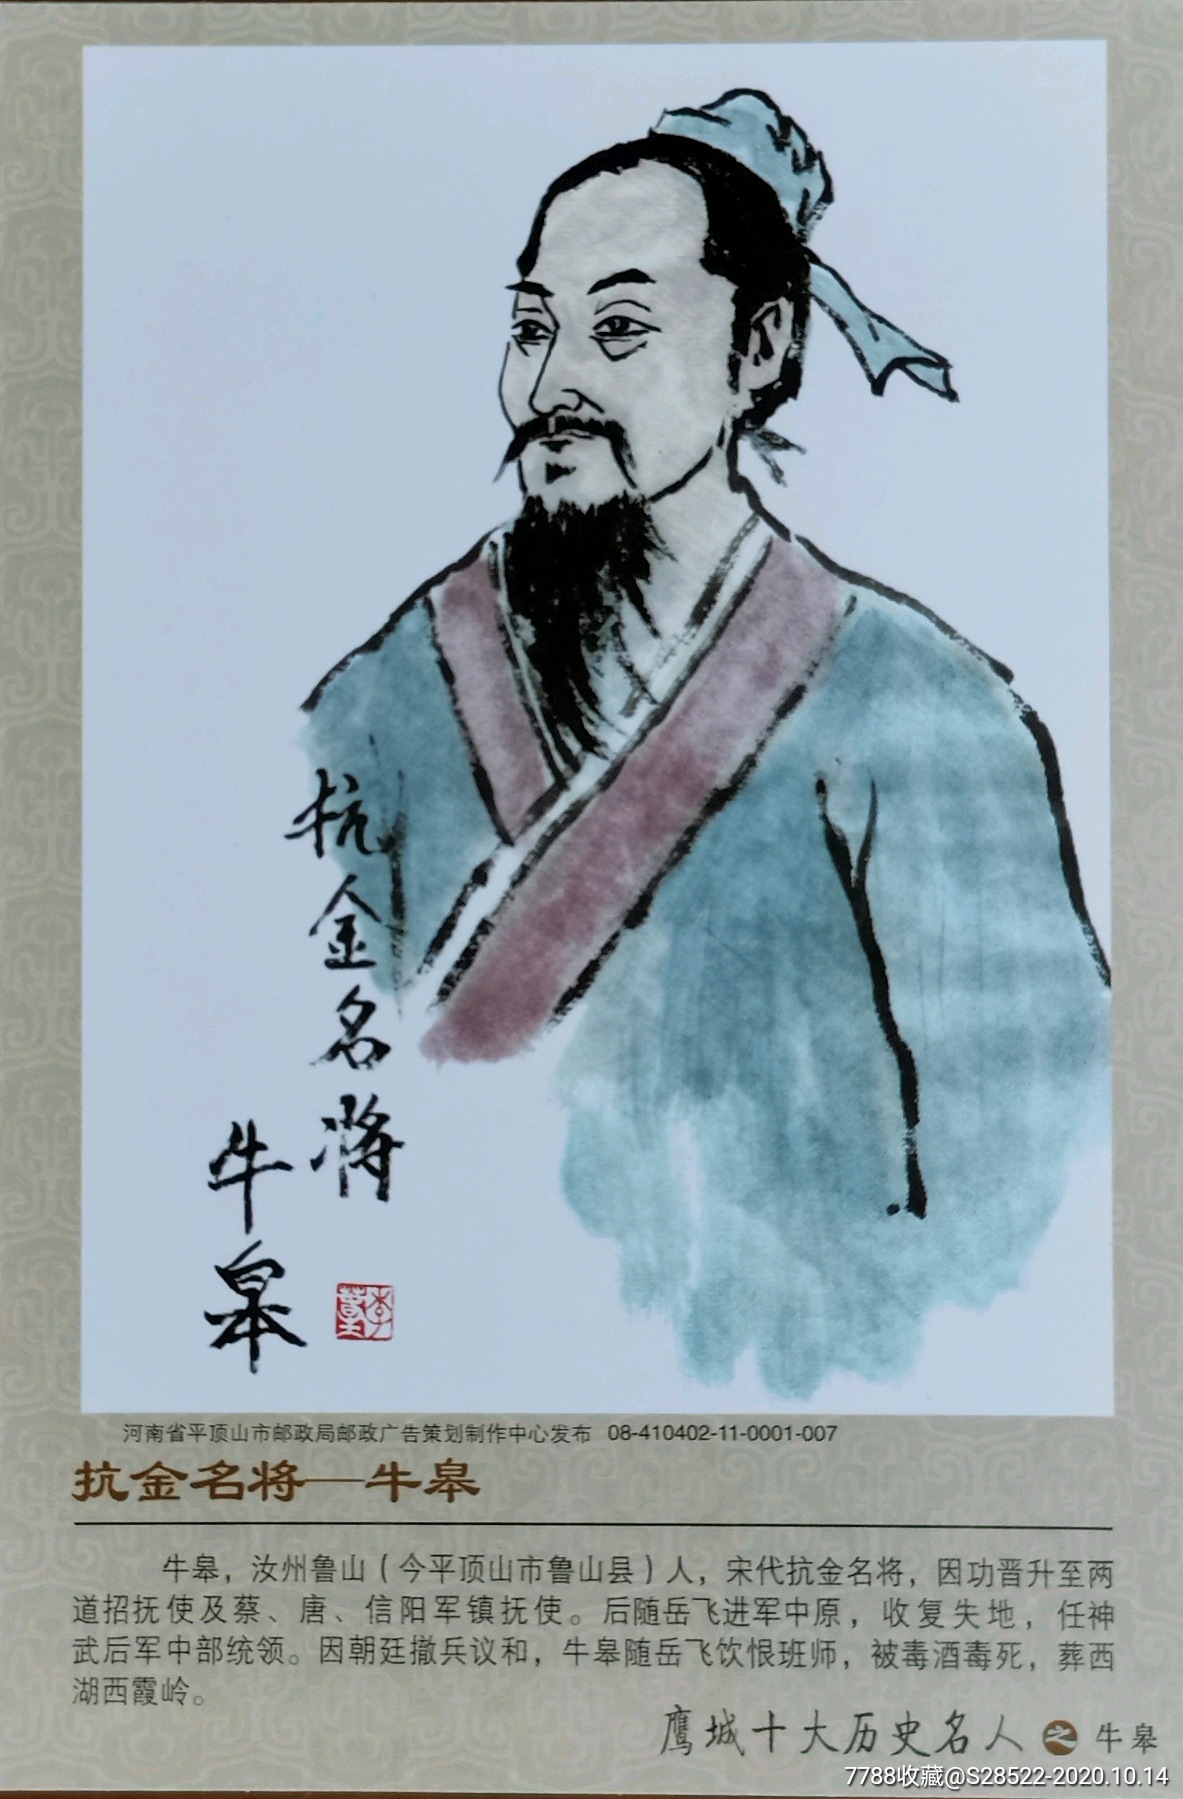 抗金名将
牛皋
河南省平顶山市邮政局邮政广告策划制作中心发布 08-410402-11-0001-007
抗金名将—牛皋
牛皋，汝州鲁山（今平顶山市鲁山县）人，宋代抗金名将，因功晋升至两
道招抚使及蔡、唐、信阳军镇抚使。后随岳飞进军中原，收复失地，任神
武后军中部统领。因朝廷撤兵议和，牛皋随岳飞饮恨班师，被毒酒毒死，葬西
湖西霞岭。
鹰城十大历史名人之牛皋
7788收藏@S28522-2020.10.14